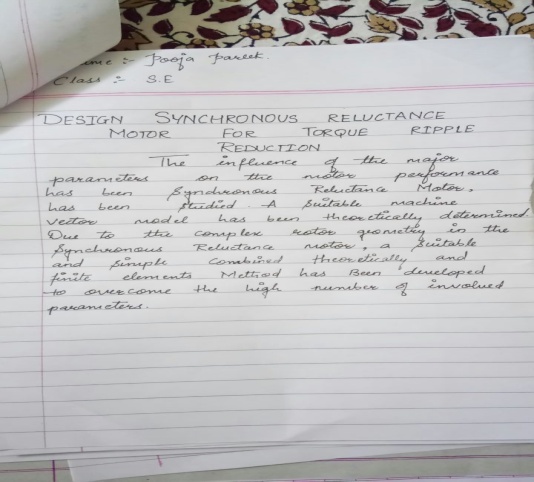 me :- Pooja Pareek.
Class :- S.E
DESIGN SYNCHRONOUS RELUCTANCE
MOTOR FOR TORQUE RIPPLE
REDUCTION
The influence of the major
parameters on the motor performance
has been Synchronous Reluctance Motor,
has been studied. A suitable machine
vector model has been theoretically determined.
Due to the complex rotor geometry in the
Synchronous Reluctance motor, a suitable
and simple combined theoretically and
finite elements Method has Been developed
to overcome the high number of involved
parameters.